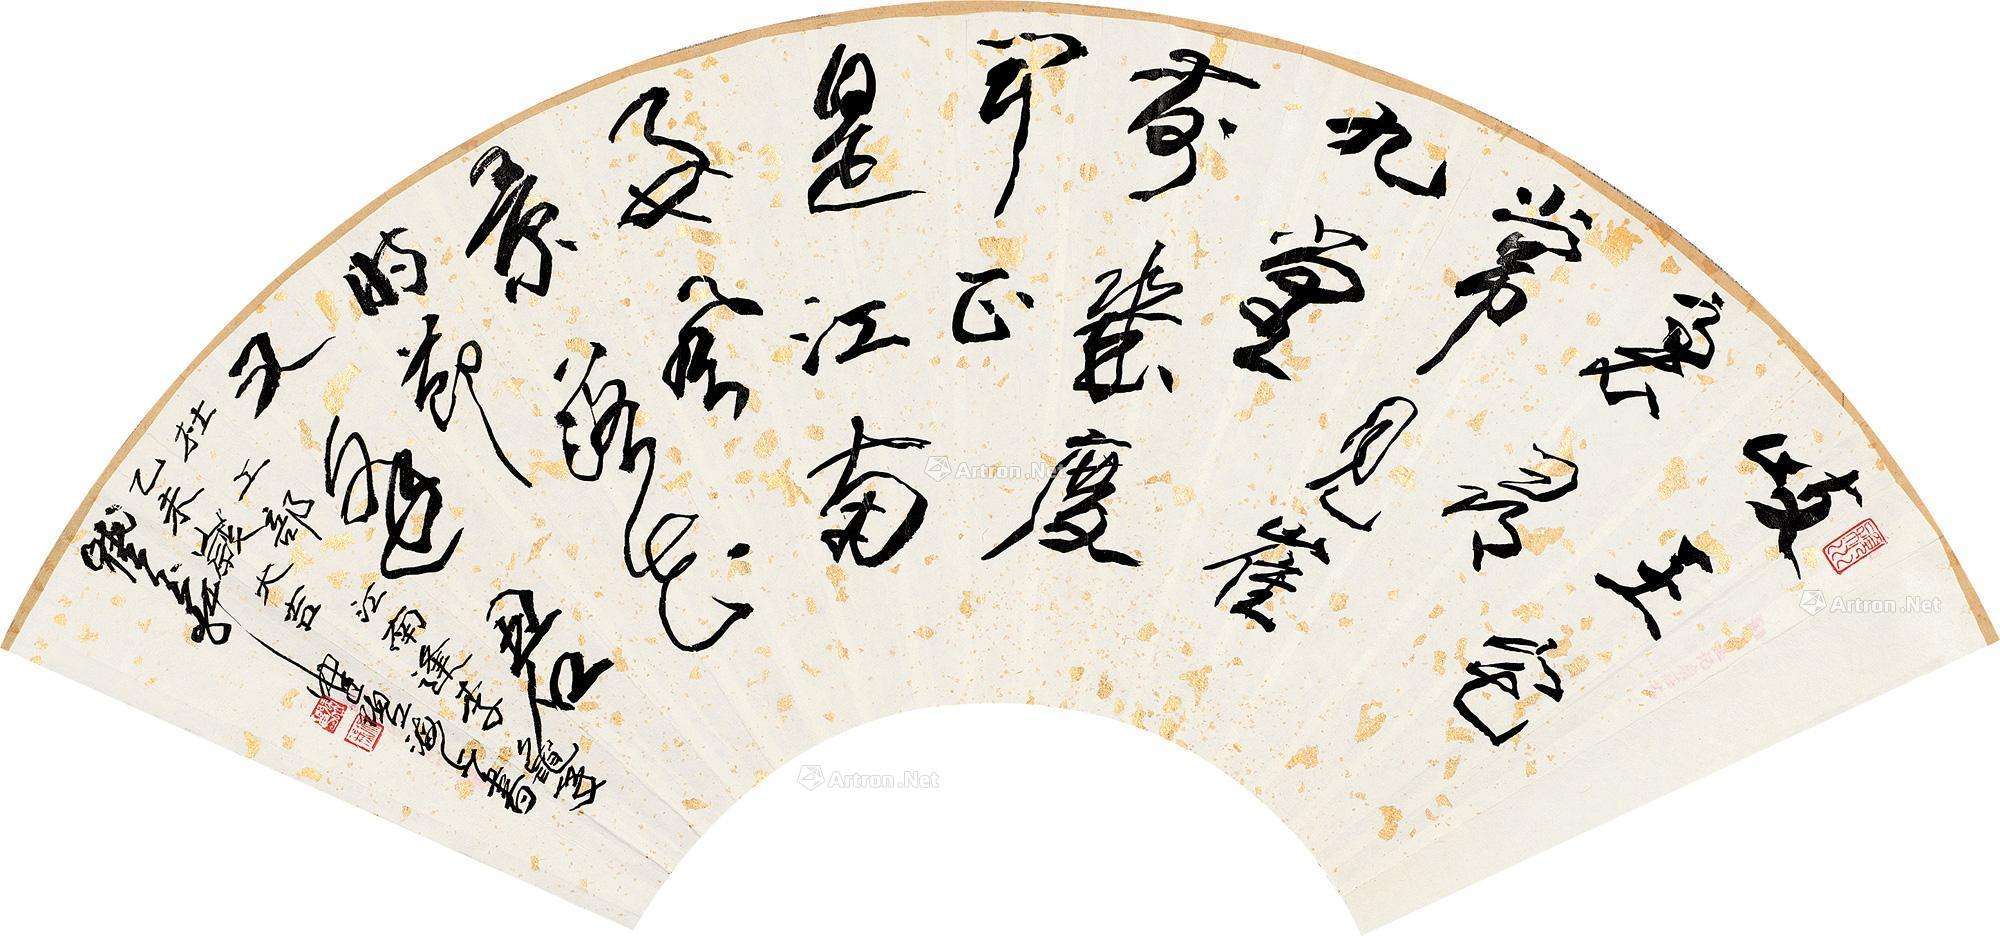 岐王宅
裏尋
常見崔
九堂
前幾度
聞正
是江南
好風
景落花
時節
又逢君
杜工部江南逢李龜年
乙未 大吉 書
Artron.Net
Artron.Net
Artron.Net